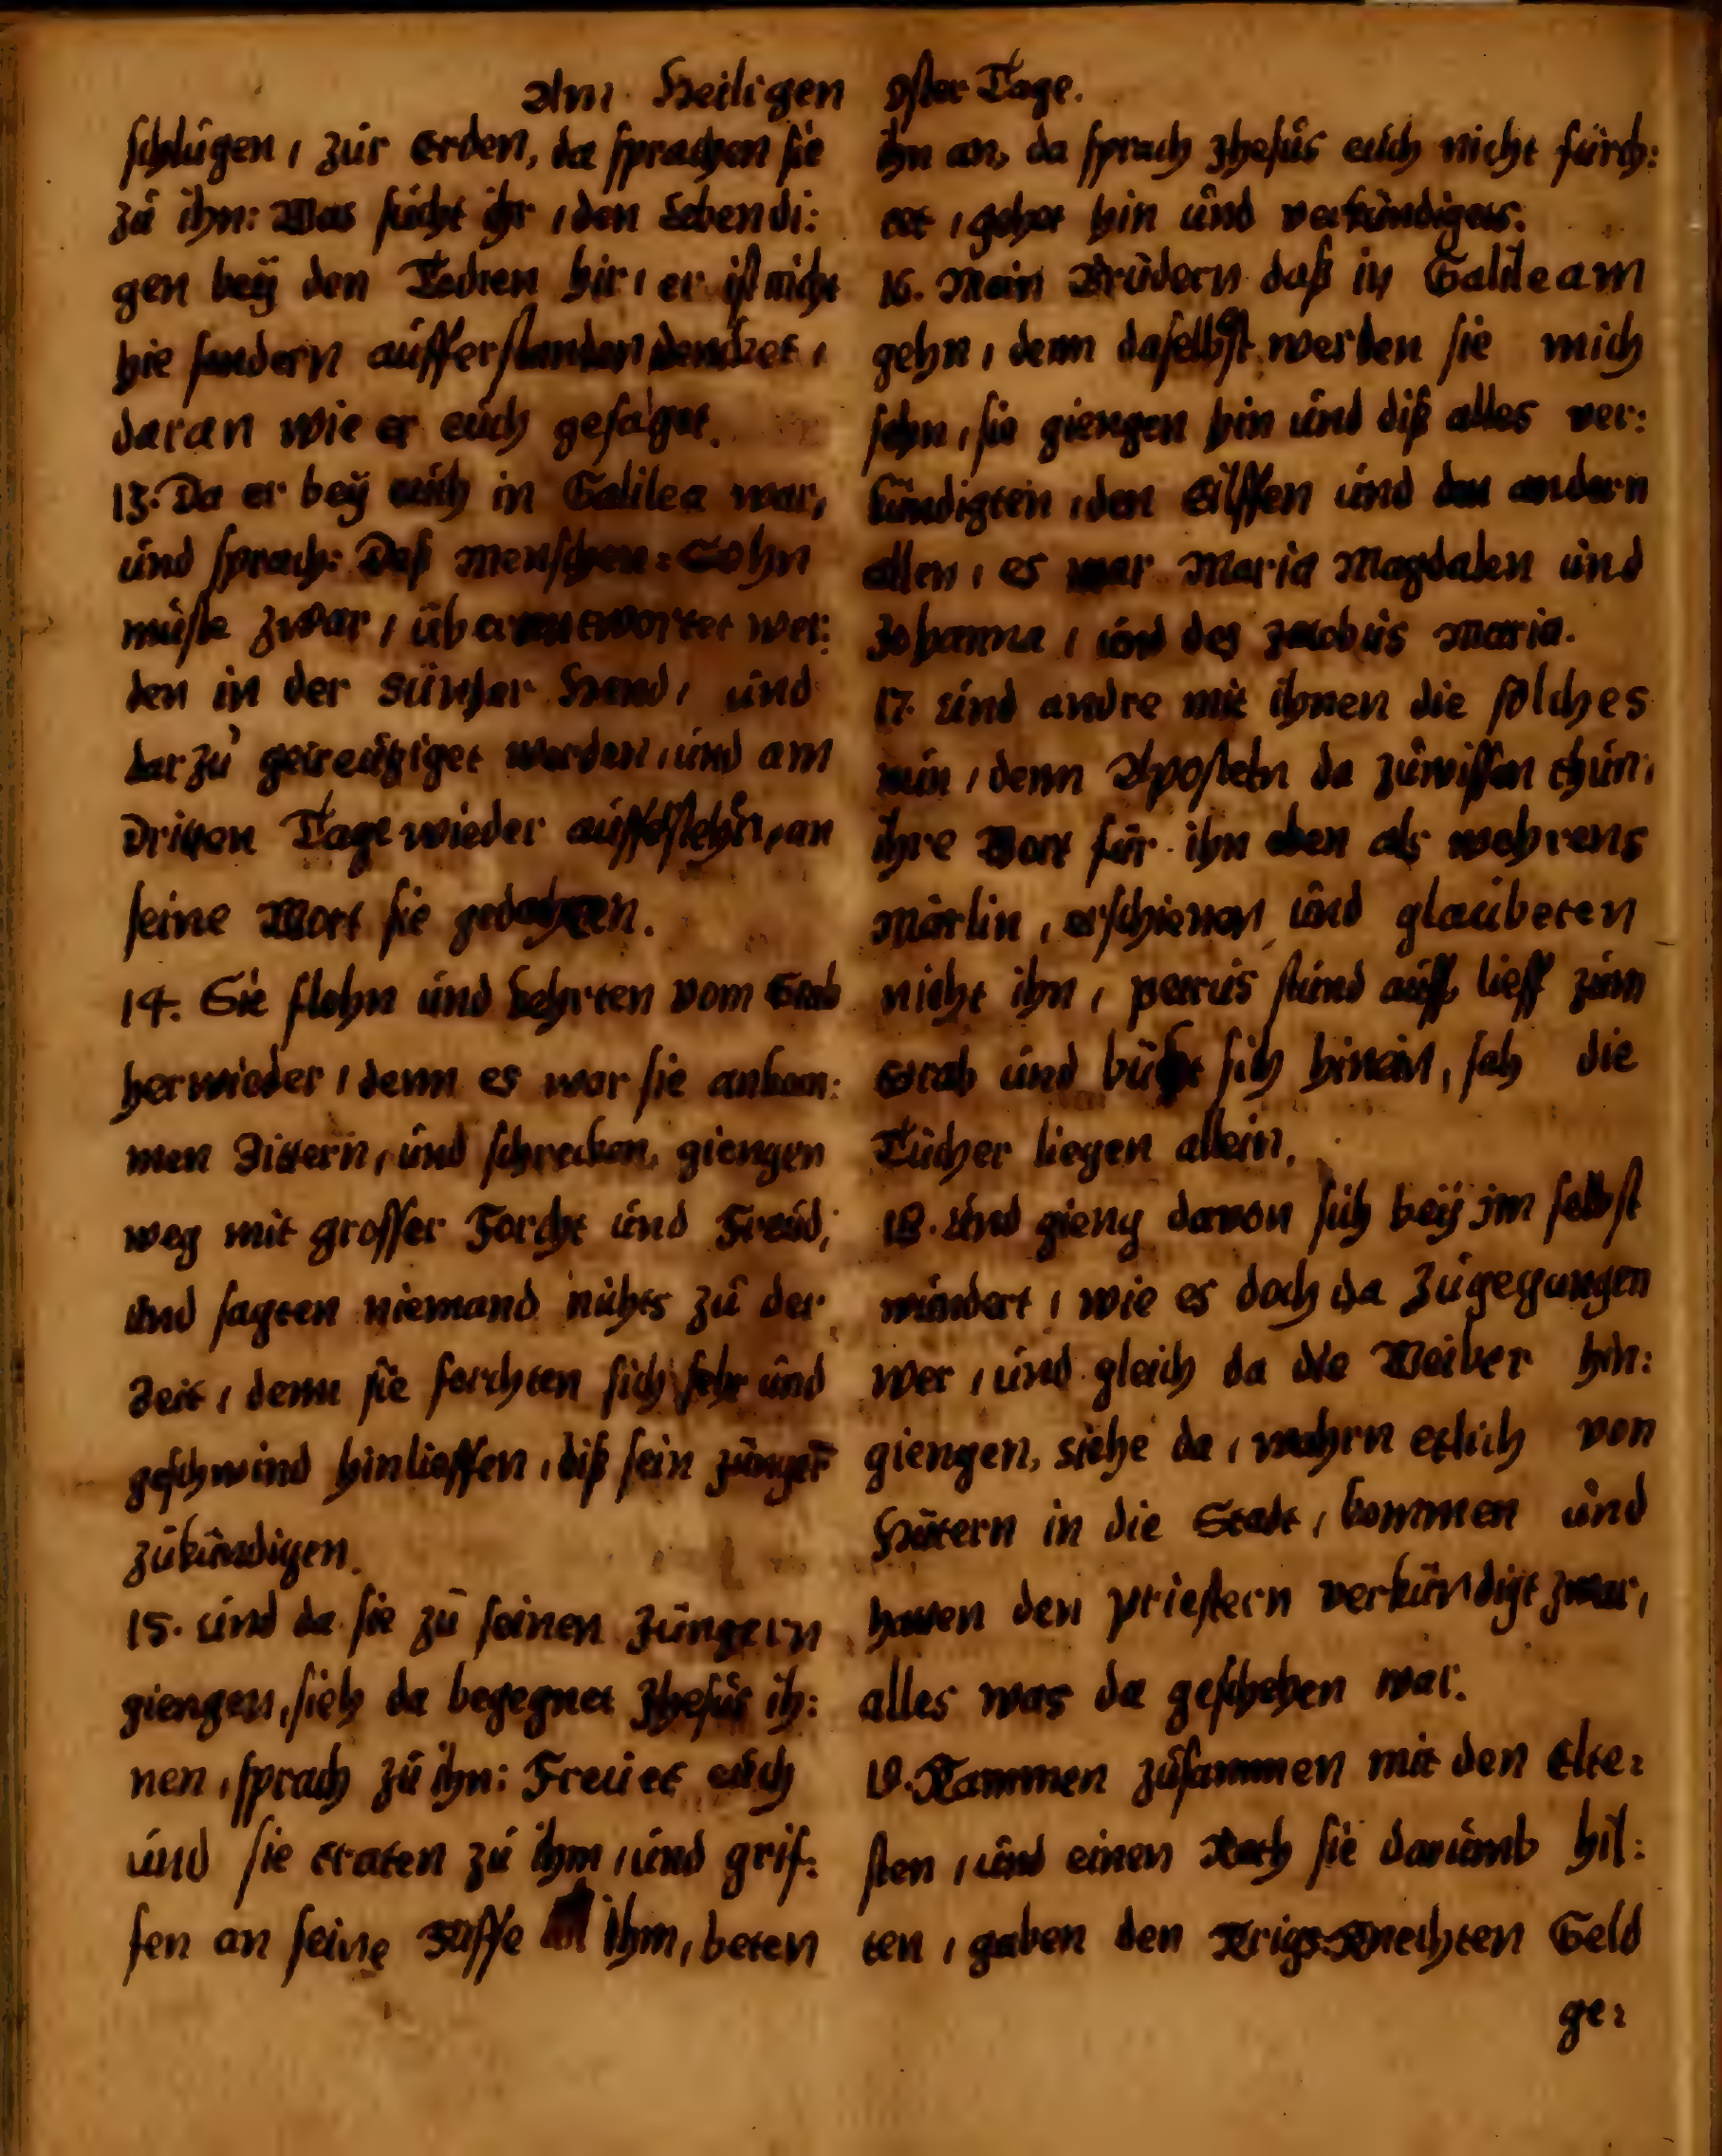 Am Heiligen Oster Tage.
schlugen, zur Erden, da sprachen sie
zu ihn: Was sucht ihr, den Lebendi:
gen beÿ den Todten hir, er ist nicht
hie sondern aufferstanden dencket,
daran wie er euch gesaget.
13. Da er beÿ euch in Galilea war,
und sprach: Deß Menschen=Sohn
müste zwar, überantwortet wer:
den in der Sünder Hend, und
darzu gecreutziget werden, und am
Dritten Tage wieder aufferstehn, an
seine Wort sie gedachten.
14. Sie flohn und kehrten vom Grab
herwieder, denn es war sie ankom:
men Zittern, und schrecken, giengen
weg mit grosser Forcht und Freud,
und sagten niemand nichts zu der
Zeit, denn sie forchten sich sehr und
geschwind hinlieffen, diß sein Jünger
zukündigen.
15. und da sie zu seinen Jüngern
giengen, sieh da begegnet Jhesus ih:
nen, sprach zu ihn: Freuet euch
und sie traten zu ihm, und grif:
fen an seine Füsse ihm, beten
ihn an, da sprach Jhesus euch nicht fürch:
tet, gehet hin und verkündigets.
16. Mein Brüdern daß in Galileam
gehn, denn daselbst werden sie mich
sehn, sie giengen hin und diß alles ver:
kündigten, den Eilffen und den andern
allen, es war Maria Magdalen und
Johanna, und des Jacobus Maria.
17. und andre mit ihnen die solches
nun, denn Aposteln da zuwissen thun,
ihre Wort für ihn eben als wehrens
Märlin, erschienen und glaubeten
nicht ihn, petrus stund auff, lieff zum
Grab und bückt sich hinein, sah die
Tücher liegen allein.
18. und gieng davon sich beÿ im selbst
wundert, wie es doch da Zugegangen
wer, und gleich da die Weiber hin:
giengen, siehe da, wahrn etlich von
Hütern in die Stadt, kommen und
hatten den priestern verkündigt zwar,
alles was da geschehen war.
19. Kammen zusammen mit den Elte:
sten, und einen Rath sie darumb hil:
ten, gaben den Krigs=Knechten Geld
ge: